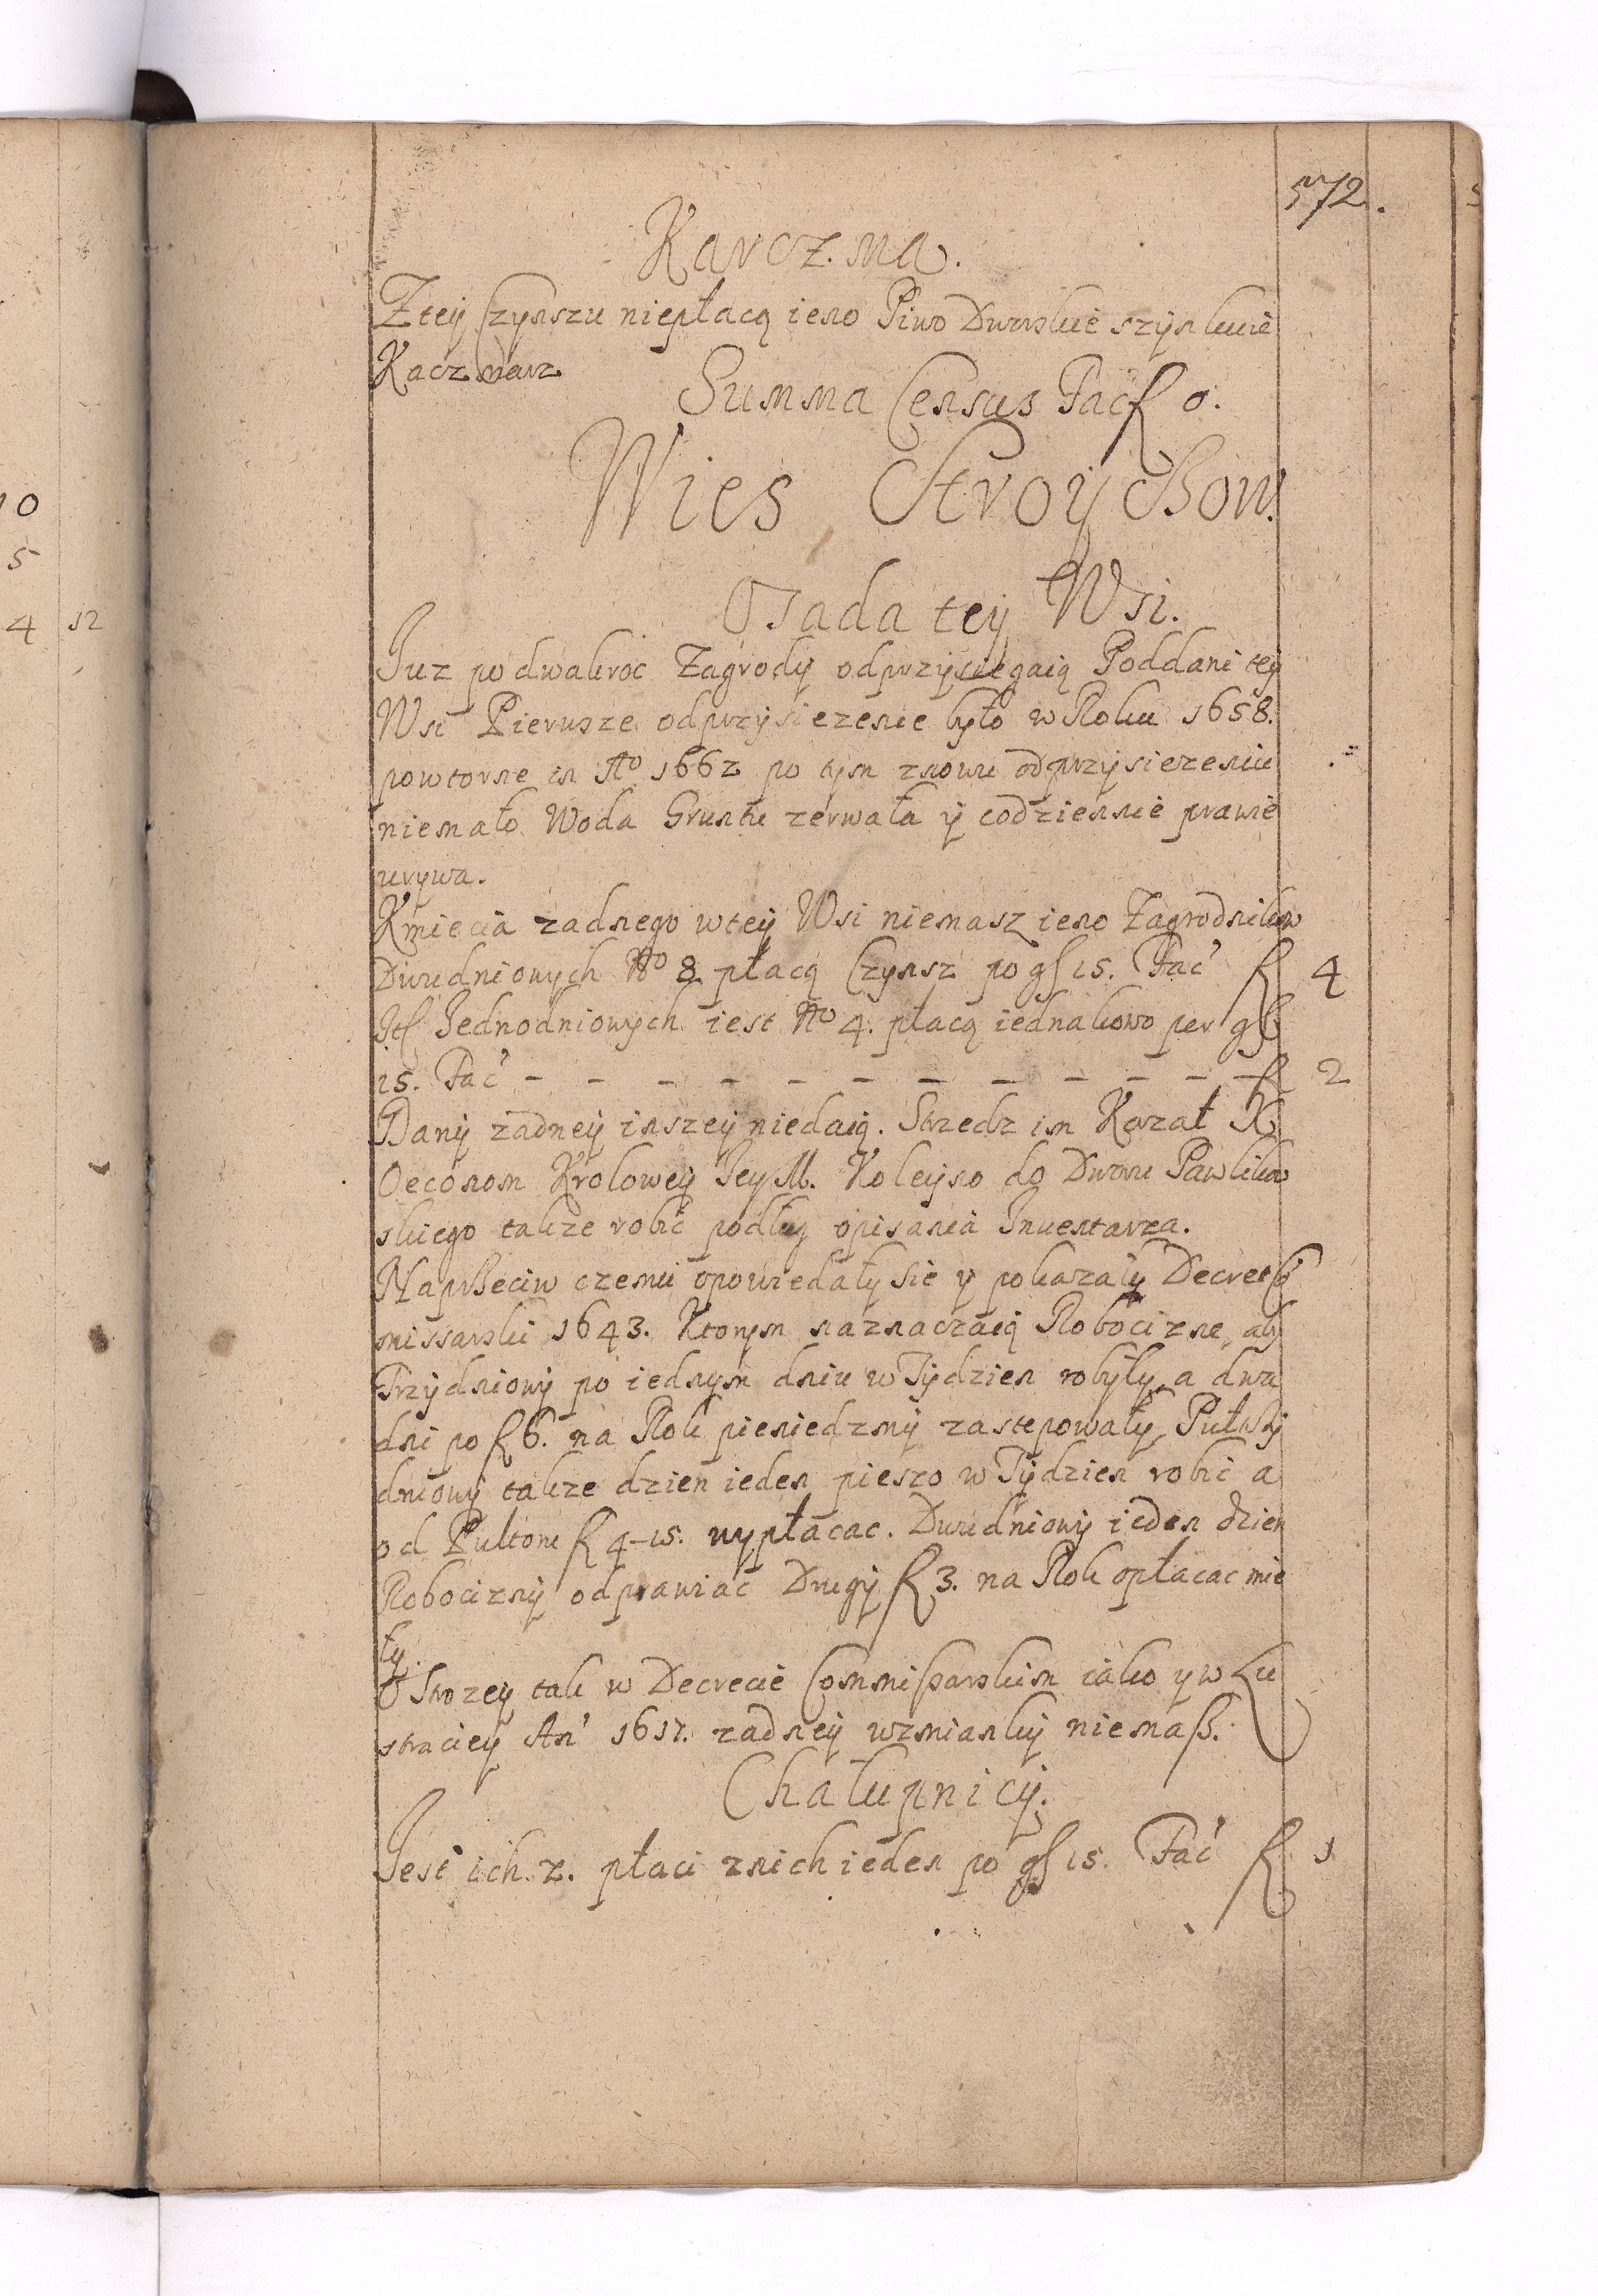 572.
Karczma.
Z tey Czynszu niepłacą ieno Piwo Dworskie szynkuie
Kaczmarz
Summa Census Fac f 0.
Wies Stroyszow.
Osada tey Wsi.
Juz po dwakroc Zagrody odprzysiegaią Poddani tey
Wsi Pierwsze odprzysiezenie było w Roku 1658.
powtorne in Aº 1662 po tym znowu odprzysiezeniu
niemało Woda Gruntu zerwała y codziennie prawie
urywa.
Kmiecia zadnego w tey Wsi niemasz ieno Zagrodnikow
Dwudniowych Nº 8 płacą Czynsz po gl 15. Fac f 4
Jednodniowych iest Nº 4. płacą iednakowo per gl
15. Fac – – – – – – – – – – – – f 2
Dany zadney inszey niedaią. Strzedz im Kazał
Oeconom Krolowey Jey M. Koleyno do Dworu Pawlikow
skiego takze robic podług opisania Inwentarza.
Naprzeciw czemu opowiedały sie y pokazały Decret
missarski 1643. Ktorym naznaczaią Robocizne, aby
Trzydniowy po iednym dniu w Tydzien robyły, a dwa
dni po f 6. na Rok pieniedzmy zastepowały,
dniowy takze dzien ieden pieszo w Tydzien robic a
od f 4–15. wypłacac. Dwudniowy ieden dzien
Robocizny odprawiac Drugy f 3. na Rok opłacac mie
ły.
O Strozey tak w Decrecie Commissarskim iako y w Lu
straciey An 1617. zadney wzmianky niemasz.
Chalupnicy.
Jest ich 2. płaci z nich ieden po gl 15. Fac f 1
10
5
4 12